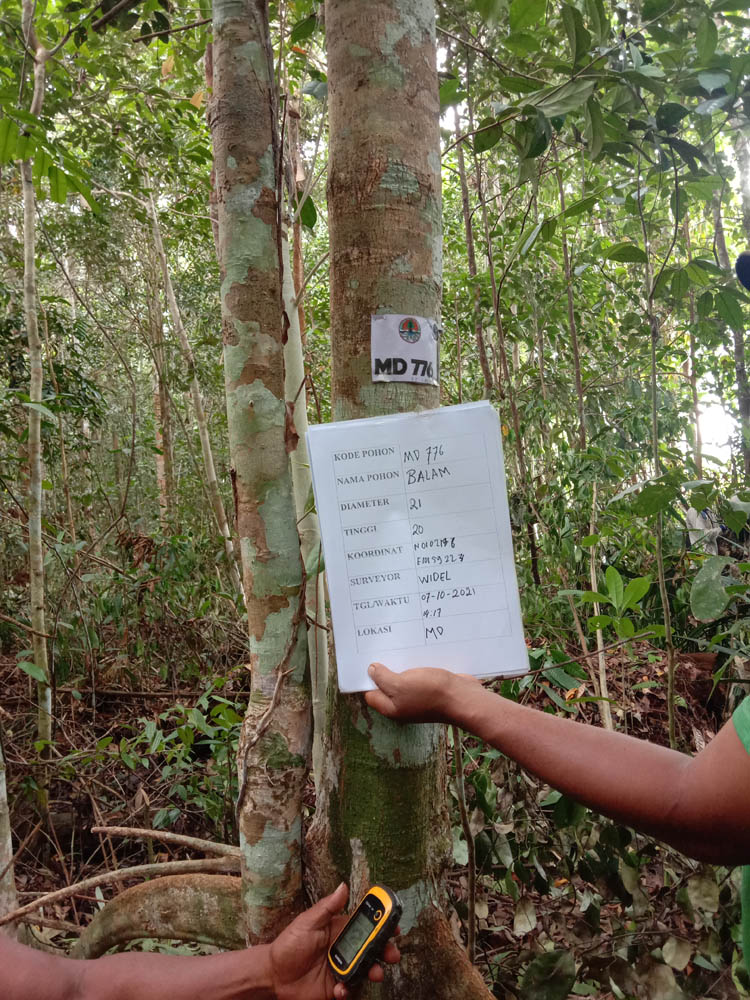 MD 776
KODE POHON MD 776
NAMA POHON BALAM
DIAMETER 21
TINGGI 20
KOORDINAT
SURVEYOR WIDEL
TGL/WAKTU 07-10-2021
14:17
LOKASI MD